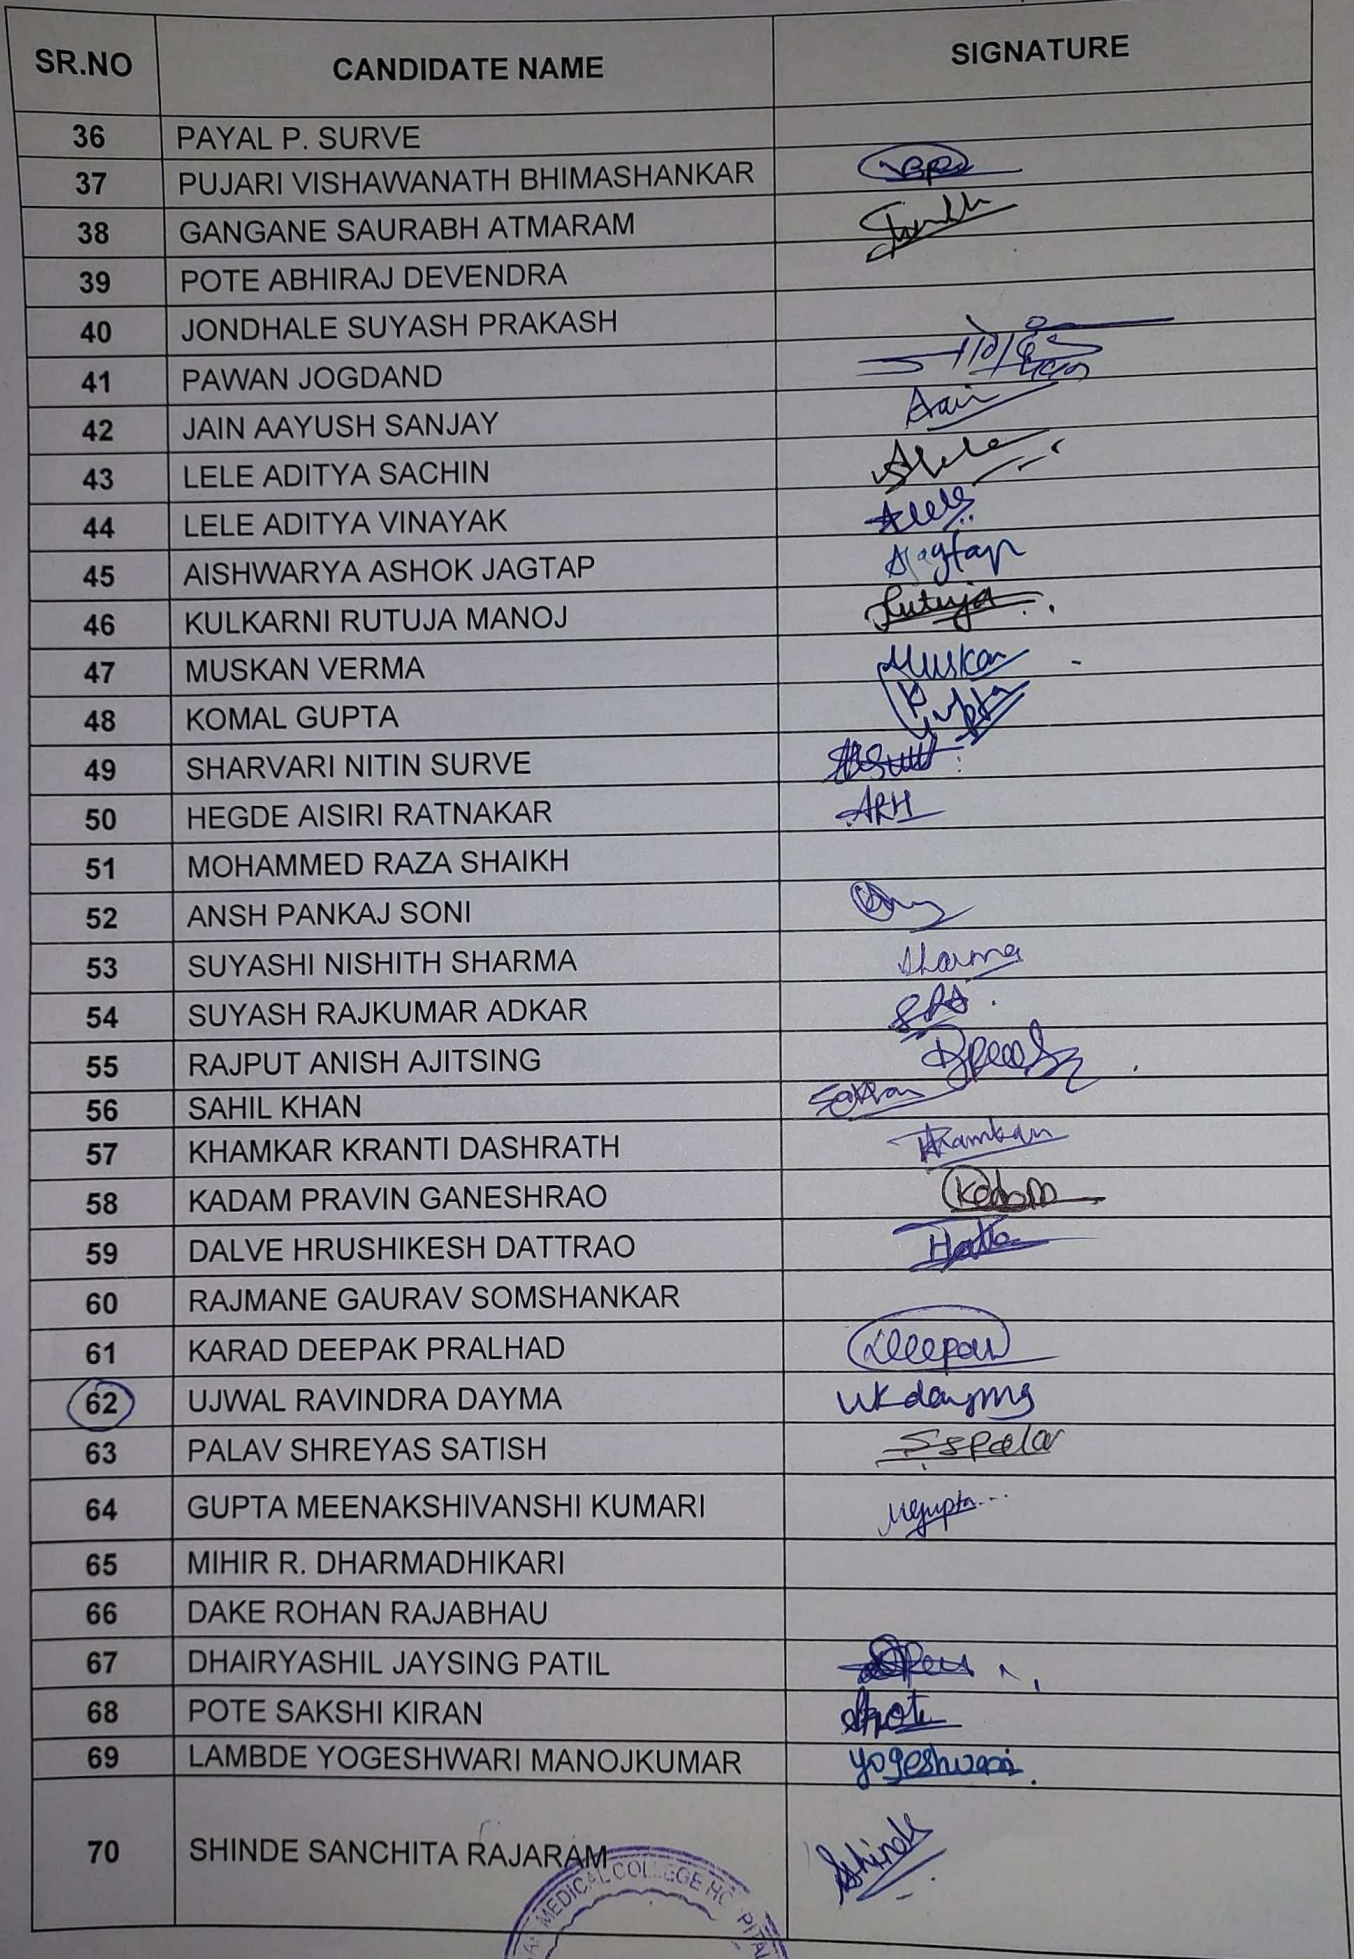 SR.NO CANDIDATE NAME SIGNATURE
36 PAYAL P. SURVE
37 PUJARI VISHAWANATH BHIMASHANKAR
38 GANGANE SAURABH ATMARAM
39 POTE ABHIRAJ DEVENDRA
40 JONDHALE SUYASH PRAKASH
41 PAWAN JOGDAND
42 JAIN AAYUSH SANJAY
43 LELE ADITYA SACHIN
44 LELE ADITYA VINAYAK
45 AISHWARYA ASHOK JAGTAP AJagtap
46 KULKARNI RUTUJA MANOJ Rutuja
47 MUSKAN VERMA Muskan
48 KOMAL GUPTA
49 SHARVARI NITIN SURVE
50 HEGDE AISIRI RATNAKAR ARH
51 MOHAMMED RAZA SHAIKH
52 ANSH PANKAJ SONI
53 SUYASHI NISHITH SHARMA Sharma
54 SUYASH RAJKUMAR ADKAR SRA
55 RAJPUT ANISH AJITSING
56 SAHIL KHAN
57 KHAMKAR KRANTI DASHRATH
58 KADAM PRAVIN GANESHRAO Kadam
59 DALVE HRUSHIKESH DATTRAO
60 RAJMANE GAURAV SOMSHANKAR
61 KARAD DEEPAK PRALHAD Deepak
62 UJWAL RAVINDRA DAYMA
63 PALAV SHREYAS SATISH SSPalav
64 GUPTA MEENAKSHIVANSHI KUMARI MGupta
65 MIHIR R. DHARMADHIKARI
66 DAKE ROHAN RAJABHAU
67 DHAIRYASHIL JAYSING PATIL
68 POTE SAKSHI KIRAN Spote
69 LAMBDE YOGESHWARI MANOJKUMAR Yogeshwari
70 SHINDE SANCHITA RAJARAM Shinde
MEDICAL COLLEGE HOSPITAL